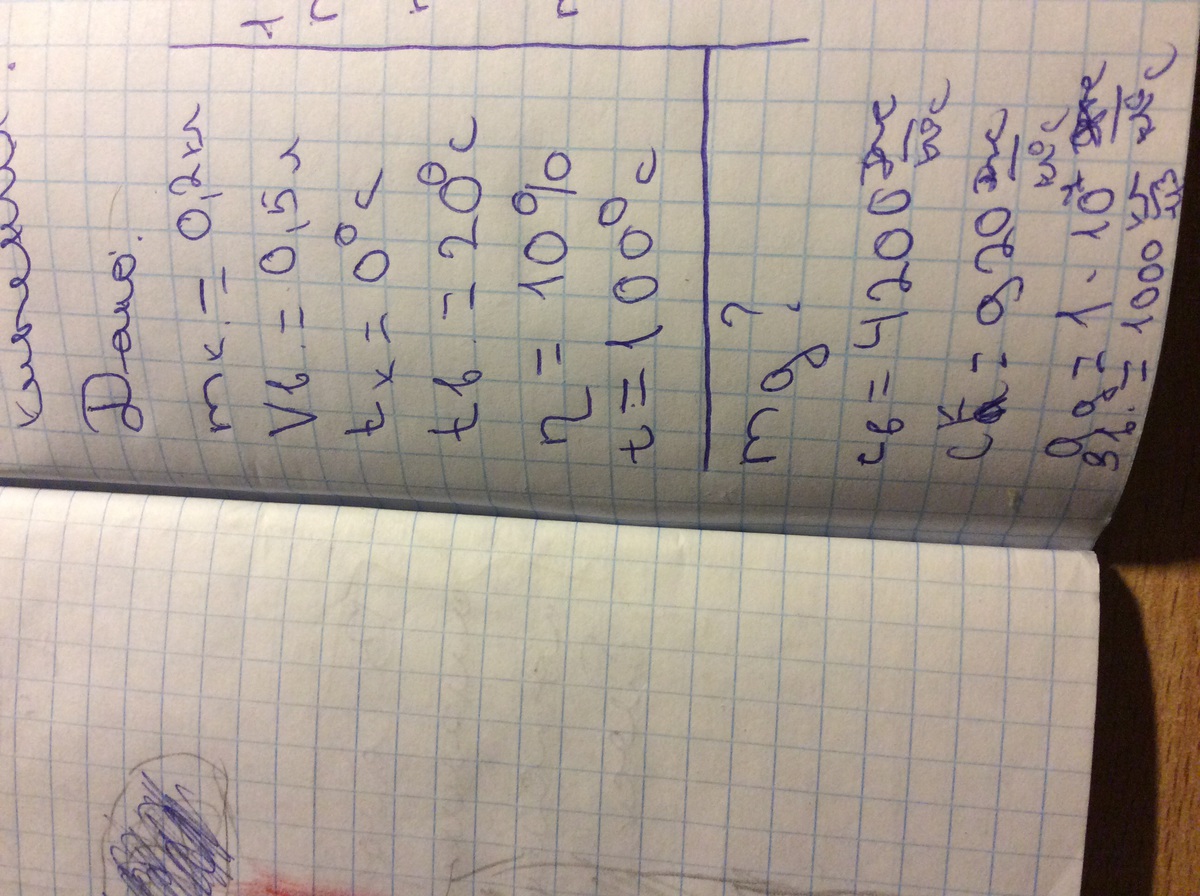 Дано:
mк. = 0,2 кг
Vв. = 0,5 л
tк = 0°C
tв. = 20°C
η = 10%
t = 100°C
mg ?
cв = 4200 Дж/кг°C
cк = 920 Дж/кг°C
qg = 1·10⁷ Дж/кг°C
ρв. = 1000 кг/м3